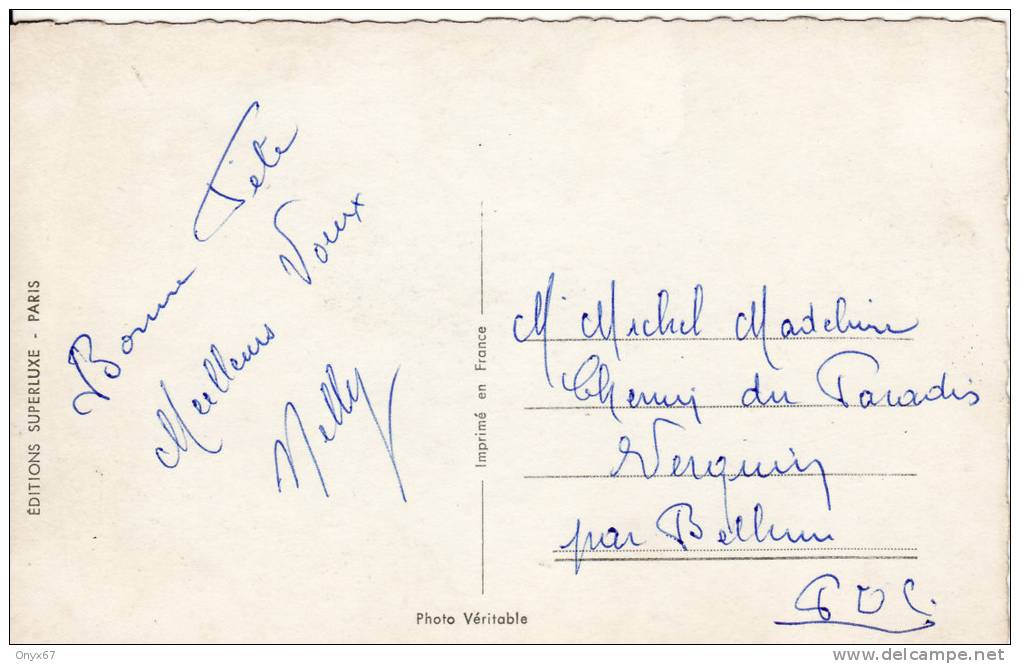 Bonne Fête
Meilleurs Voeux
Nelly
ÉDITIONS SUPERLUXE - PARIS
Imprimé en France
Photo Véritable
Mr Michel Madeline
Chemin du Paradis
Verquin
par Bethune
P D C.
Onyx67
http://www.delcampe.net